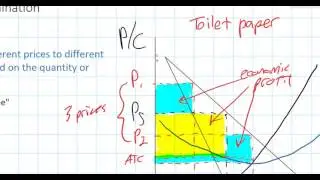 ination
Toilet paper
P/C
erent prices to different
d on the quantity or
e"
economic
profit
P1
3 prices
PS
P2
ATC